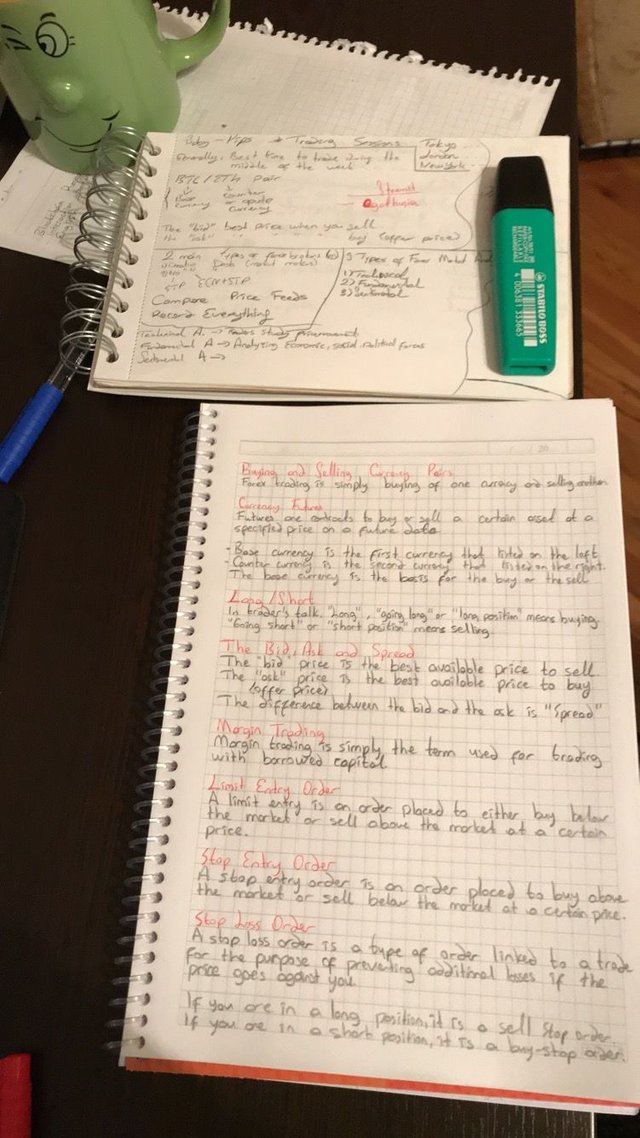 Pips → Trading Sessions
Tokyo
London
New York
Generally, Best time to trade during the
middle of the week
BTC/ETH Pair
Base
counter
currency
or quote
currency
The "bid" best price when you sell
the "ask" " " " " buy (offer price)
2 main Types of forex brokers
Desk (market makers)
STP ECN+STP
Compare Price Feeds
Record Everything
3 Types of Forex Market
1) Technical
2) Fundamental
3) Sentimental
Technical A. → Study
Fundamental A → Analyzing Economic, social political forces
Sentimental A →
STABILO BOSS
Buying and Selling Currency Pairs
Forex trading is simply buying of one currency and selling another.
Currency Futures
Futures are contracts to buy or sell a certain asset at a
specified price on a future date
- Base currency is the first currency that listed on the left.
- Counter currency is the second currency that listed on the right.
The base currency is the basis for the buy or the sell
Long/Short
In trader's talk, "Long", "going long" or "long position" means buying.
"Going short" or "short position" means selling.
The Bid, Ask and Spread
The "bid" price is the best available price to sell.
The "ask" price is the best available price to buy
(offer price)
The difference between the bid and the ask is "Spread"
Margin Trading
Margin trading is simply the term used for trading
with borrowed capital
Limit Entry Order
A limit entry is an order placed to either buy below
the market or sell above the market at a certain
price.
Stop Entry Order
A stop entry order is an order placed to buy above
the market or sell below the market at a certain price.
Stop Loss Order
A stop loss order is a type of order linked to a trade
for the purpose of preventing additional losses if the
price goes against you
If you are in a long position, it is a sell stop order.
If you are in a short position, it is a buy-stop order.